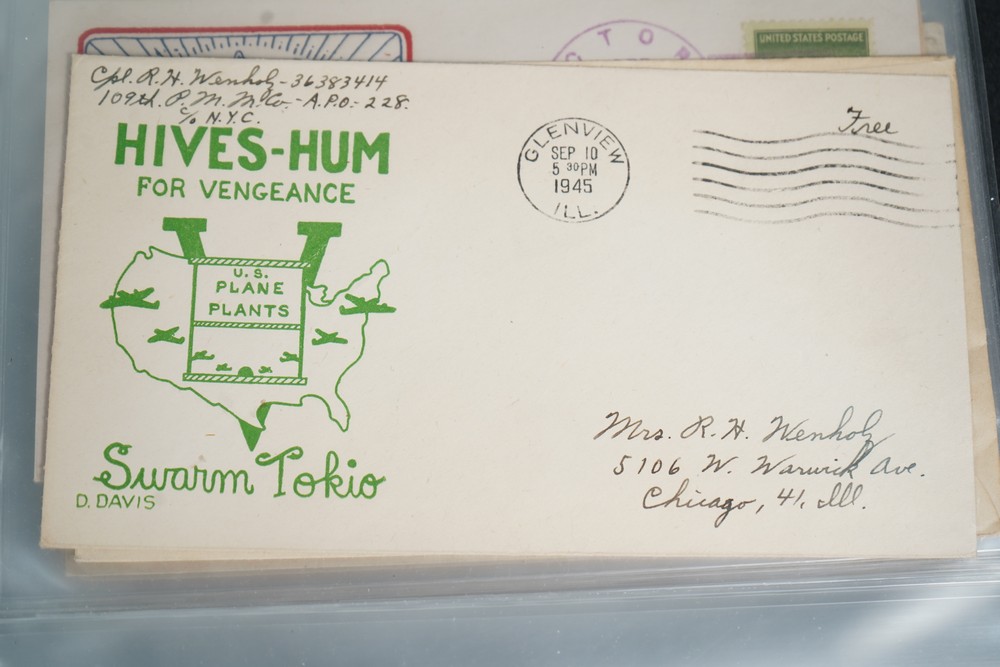 TOR
UNITED STATES POSTAGE
Cpl. R. H. Wenholz - 36383414
109th. P. M. M. Co. - A.P.O. - 228.
c/o N.Y.C.
HIVES-HUM
FOR VENGEANCE
V
U.S.
PLANE
PLANTS
Swarm Tokio
D. DAVIS
GLENVIEW
SEP 10
5 30 PM
1945
ILL.
Free
Mrs. R. H. Wenholz
5106 W. Warwick Ave.
Chicago, 41, Ill.